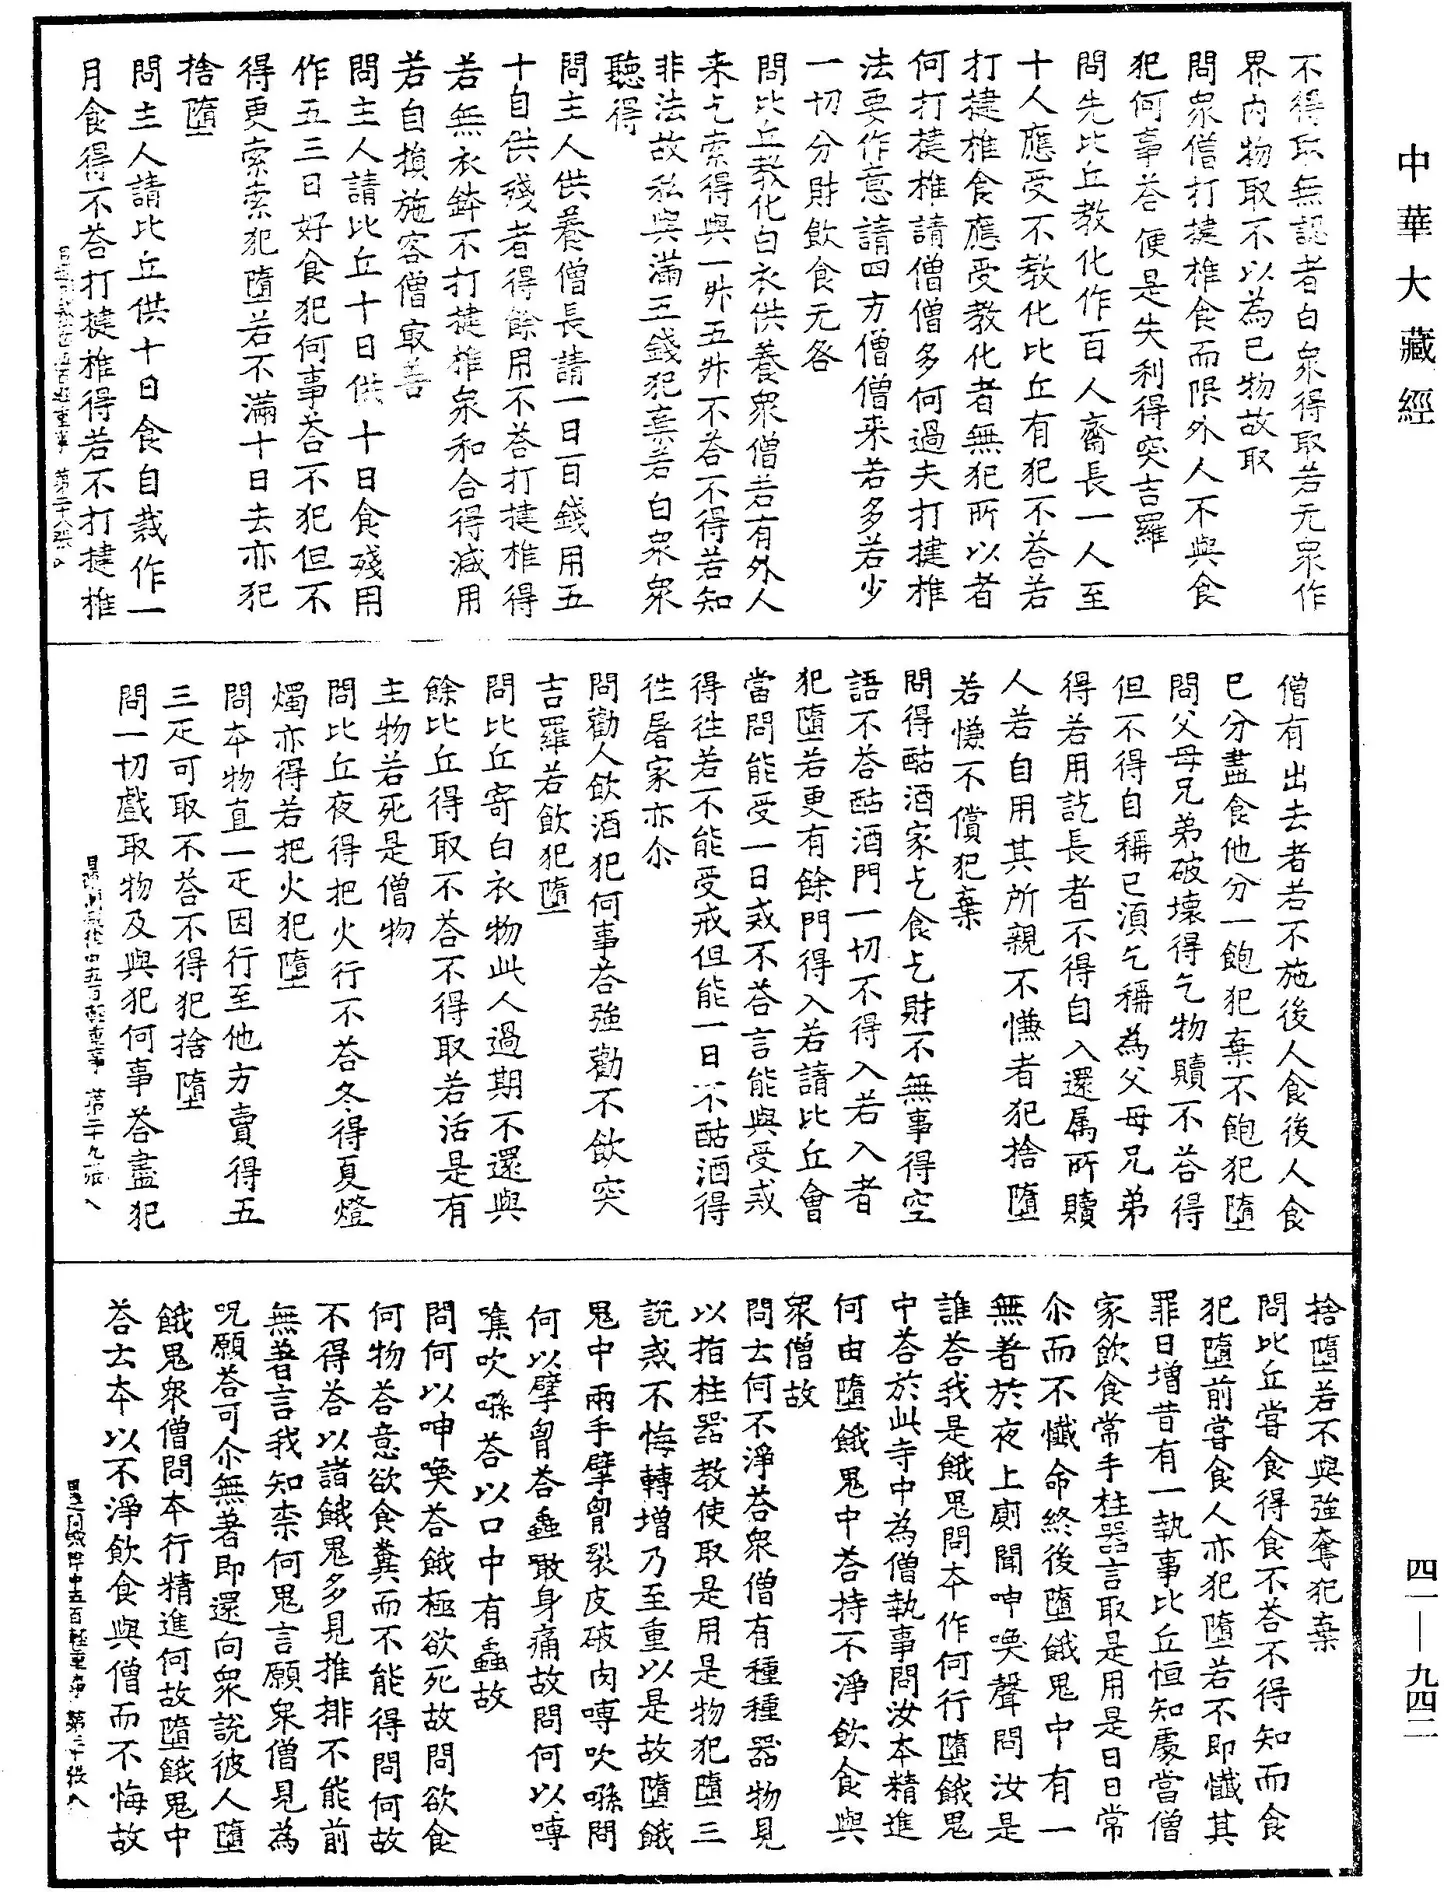 中華大藏經
不得取無認者白衆得取若无衆作
界内物取不以為已物故取
問衆僧打揵椎食而限外人不與食
犯何事荅便是失利得突吉羅
問先比丘教化作百人齋長一人至
十人應受不教化比丘有犯不荅若
打揵椎食應受教化者無犯所以者
何打揵椎請僧僧多何過夫打揵椎
法要作意請四方僧僧来若多若少
一切分財飲食无咎
問比丘教化白衣供養衆僧若有外人
来乞索得與一升五升不荅不得若知
非法故私與滿五錢犯棄若白衆衆
聽得
問主人供養僧長請一日百錢用五
十自供殘者得餘用不荅打揵椎得
若無衣鉢不打揵椎衆和合得減用
若自損施客僧㝡善
問主人請比丘十日供十日食殘用
作五三日好食犯何事荅不犯但不
得更索索犯墮若不滿十日去亦犯
捨墮
問主人請比丘供十日食自裁作一
月食得不荅打揵椎得若不打揵椎
五百輕重事 第二十八張
僧有出去者若不施後人食後人食
已分盡食他分一飽犯棄不飽犯墮
問父母兄弟破壞得乞物贖不荅得
但不得自稱已湏乞稱為父母兄弟
得若用訖長者不得自入還属所贖
人若自用其所親不慊者犯捨墮
若慊不償犯棄
問得酤酒家乞食乞財不無事得空
語不荅酤酒門一切不得入若入者
犯墮若更有餘門得入若請比丘會
當問能受一日戒不荅言能與受戒
得徃若不能受戒但能一日不酤酒得
徃屠家亦尒
問勸人飲酒犯何事荅強勸不飲突
吉羅若飲犯墮
問比丘寄白衣物此人過期不還與
餘比丘得取不荅不得取若活是有
主物若死是僧物
問比丘夜得把火行不荅冬得夏燈
燭亦得若把火犯墮
問本物直一疋因行至他方賣得五
三疋可取不荅不得犯捨墮
問一切戲取物及與犯何事荅盡犯
五百輕重事 第二十九張
捨墮若不與強奪犯棄
問比丘嘗食得食不荅不得知而食
犯墮前嘗食人亦犯墮若不即懺其
罪日增昔有一執事比丘恒知處當僧
家飲食常手柱器言取是用是日日常
尒而不懺命終後墮餓鬼中有一
無著於夜上廁聞呻喚聲問汝是
誰荅我是餓鬼問本作何行墮餓鬼
中荅於此寺中為僧執事問汝本精進
何由墮餓鬼中荅持不淨飲食與
衆僧故
問云何不淨荅衆僧有種種器物見
以指柱器教使取是用是物犯墮三
説戒不悔轉增乃至重以是故墮餓
鬼中兩手擘胷裂皮破肉嘑吹噝問
何以擘胷荅蟲噉身痛故問何以嘑
噏吹噝荅以口中有蟲故
問何以呻喚荅餓極欲死故問欲食
何物荅意欲食糞而不能得問何故
不得荅以諸餓鬼多見推排不能前
無著言我知柰何鬼言願衆僧見為
呪願荅可尒無著即還向衆説彼人墮
餓鬼衆僧問本行精進何故墮餓鬼中
荅云本以不淨飲食與僧而不悔故
五百輕重事 第三十張
四一—九四二